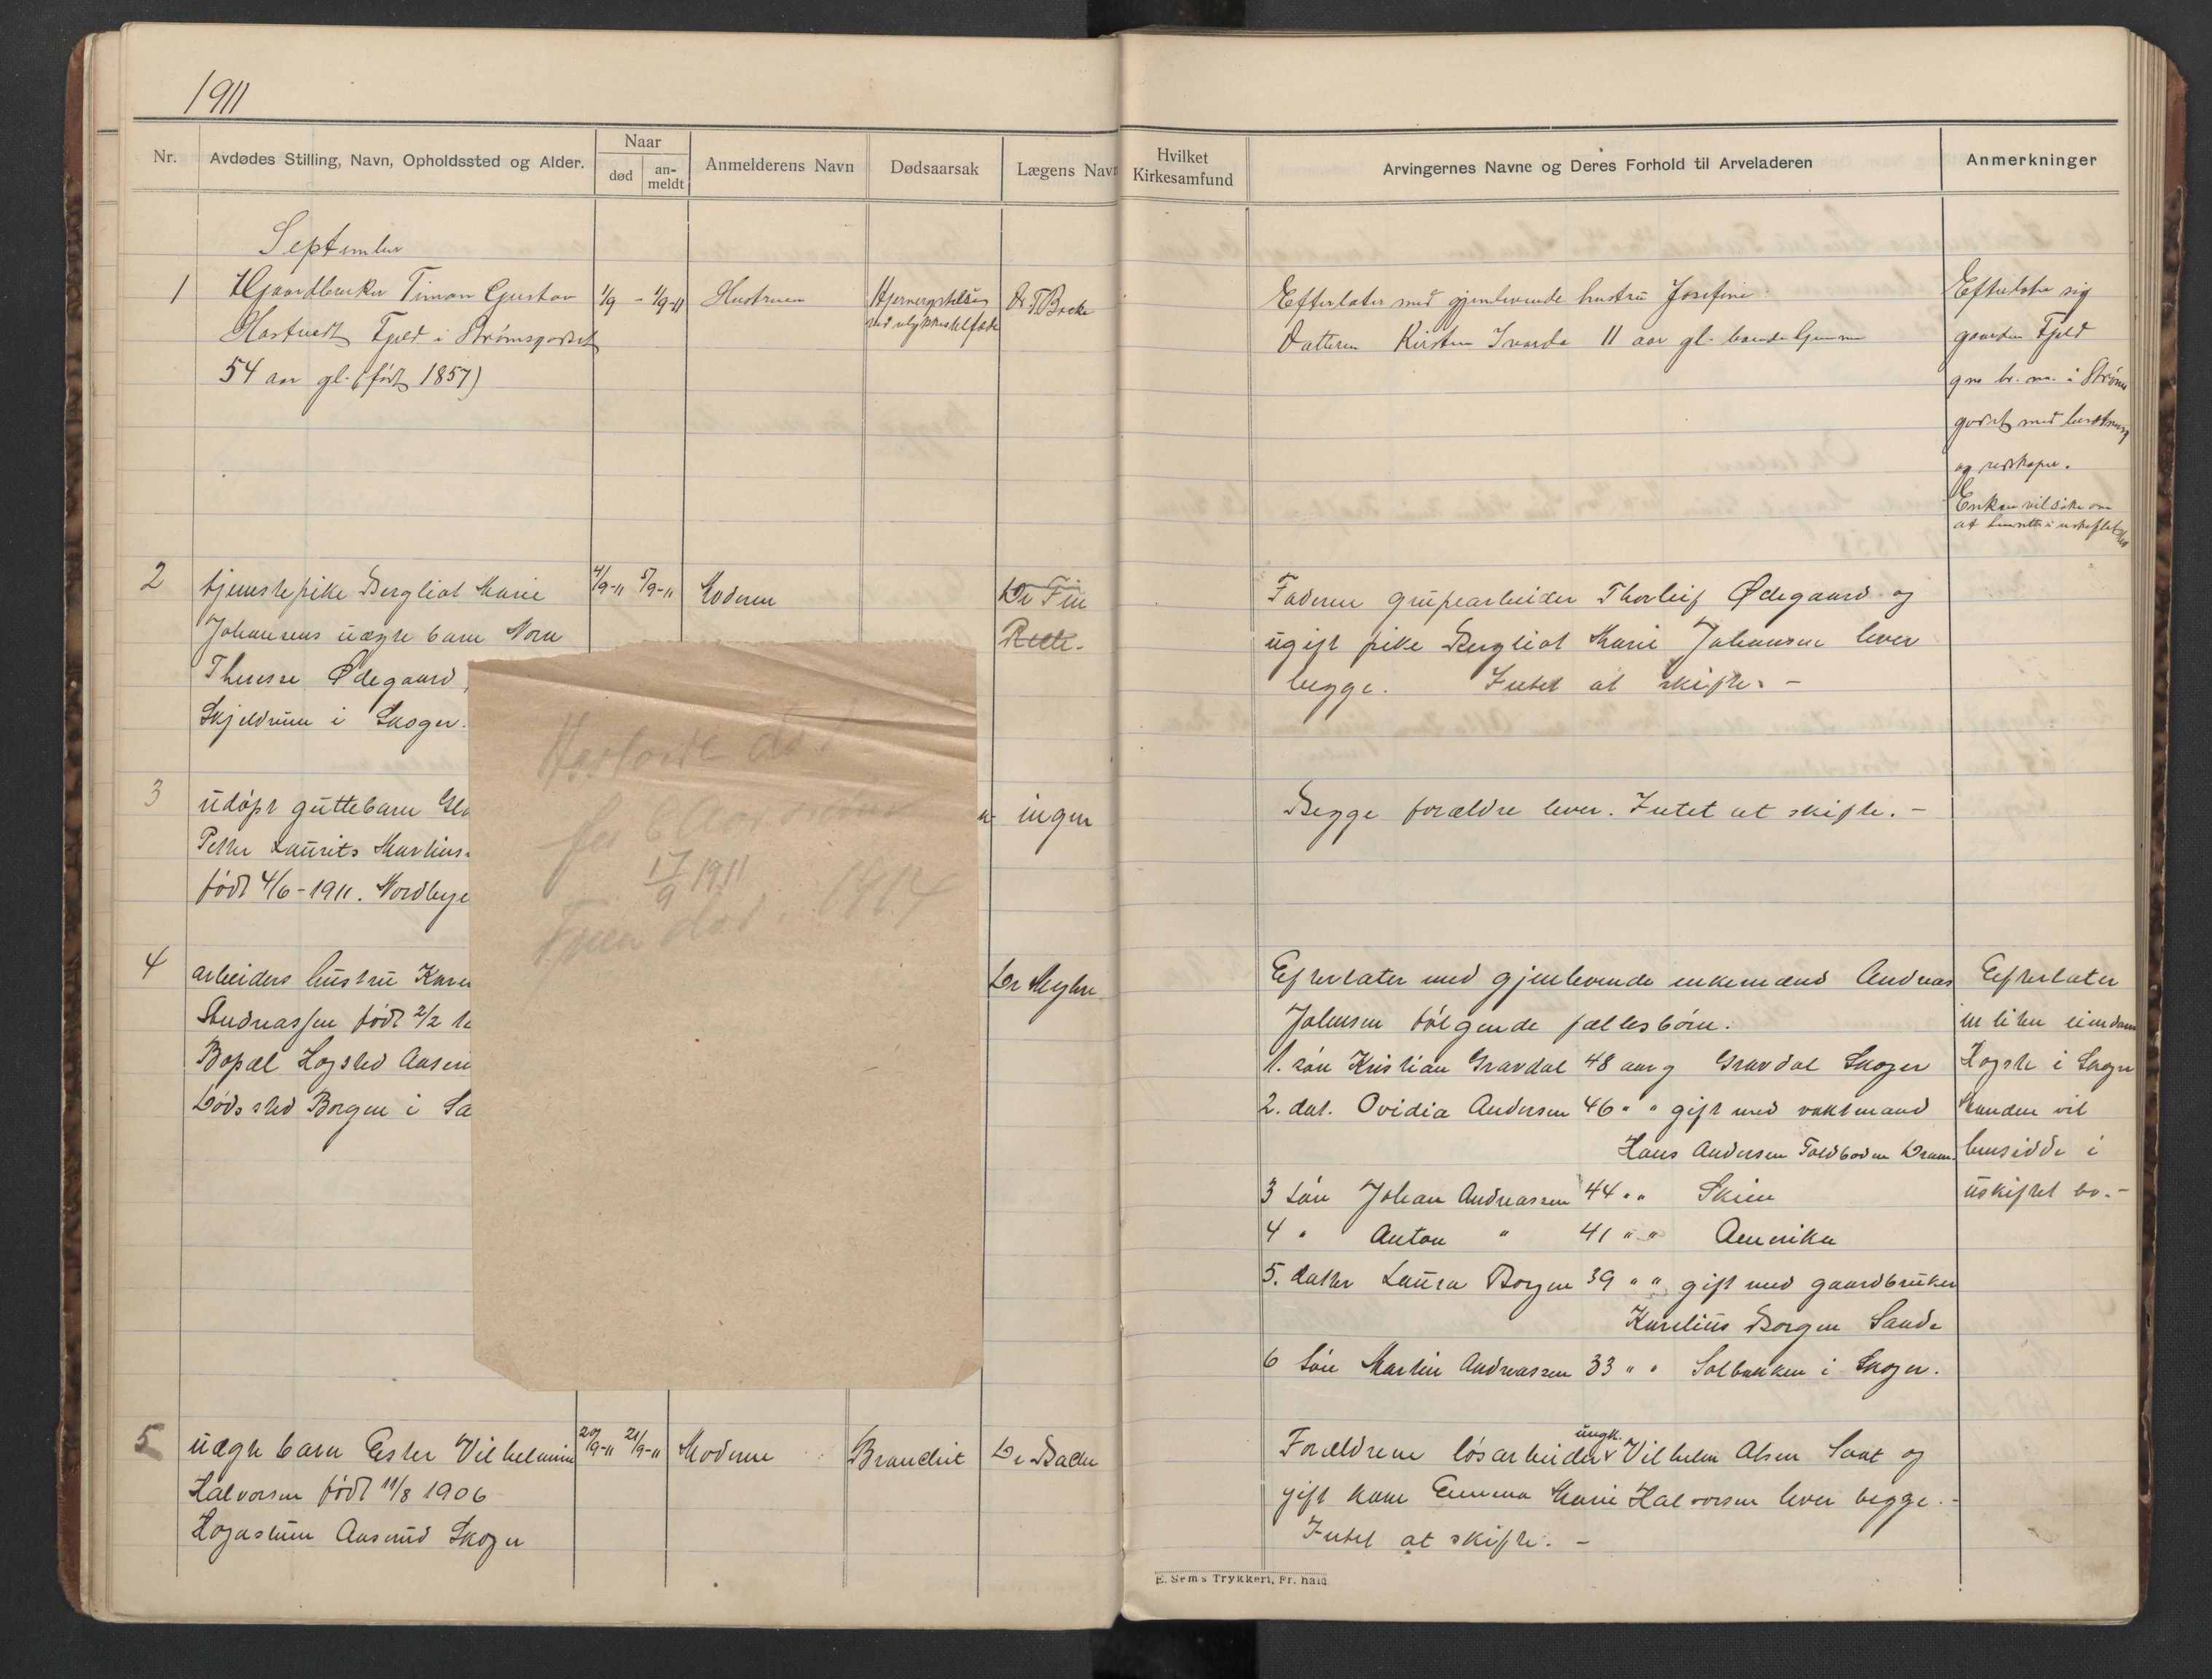 1911
Nr.
Avdødes Stilling, Navn, Opholdssted og Alder.
Naar
død
an-
meldt
Anmelderens Navn
Dødsaarsak
Lægens Navn
Hvilket
Kirkesamfund
Arvingernes Navne og Deres Forhold til Arveladeren
Anmerkninger
September
1
Gaardbruker Timan Gustav
Hartvedt Fjeld i Strømsgodset
54 aar gl. (født 1857)
1/9 - 1/9-11
Hustruen
Hjernerystelse
ved ulykkestilfælde
Dr
Efterlater med gjenlevende hustru Josefine
Datteren Kirsten 11 aar gl.
Efterlater sig
gaarden Fjeld
gno br. no. i Strøms
godset med besætning
og redskaper.
Enken vil søke om
at hensitte i uskiftet bo
2
tjenestepike Bergliot Marie
Johansens uægte barn Nora
Therese Ødegaard,
Skjeldrum i Skoger.
4/9-11 5/9-11
Moderen
Dr Fin
Faderen grupearbeider Thorleif Ødegaard og
ugift pike Bergliot Marie Johansen lever
begge. Intet at skifte. -
3
udøpt guttebarn
Petter Laurits Martins
født 4/6-1911. Nordbye
ingen
Begge forældre lever. Intet at skifte. -
4
arbeiders hustru Karen
Andreassen født 2/2
Bopæl Hogsted Aasen
Dødssted Borgen i Sa
Dr Myhre
Efterlater med gjenlevende enkemand Andreas
Johnsen følgende fællesbörn:
1. sön Kristian Gravdal 48 aar g Gravdal Skoger
2. dat. Ovidia Andersen 46 " " gift med vaktmand
Hans Andersen Toldboden Dram.
3 Sön Johan Andreassen 44 " " Skien
4 " Anton " 41 " " Amerika
5. datter Laura Borgen 39 " " gift med gaardbruker
Karelius Borgen Sande
6 Sön Martin Andreassen 33 " " Solbakken i Skoger.
Efterlater
en liten eiendom
Hogste i Skoger
Manden vil
hensidde i
uskiftet bo. -
død
17/9 1911
død. 1914
5
uægte barn Ester Vilhelmine
Halvorsen født 11/8 1906
Aaserud Skoger
20/9-11 21/9-11
Moderen
Dr Bache
Forældrene løsarbeider ungk. Vilhelm Olsen og
gift kone Emma Marie Halvorsen lever begge. -
Intet at skifte. -
E. Sems Trykkeri, Fr. hald